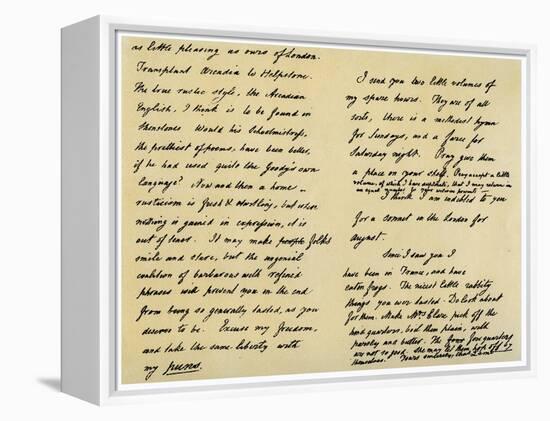 as little pleasing as ours of London.
Transplant Arcadia to Helpstone.
The true rustic style, the Arcadian
English, I think is to be found in
Shenstone. Would his Schoolmistress,
the prettiest of poems, have been better,
if he had used quite the Goody's own
language? Now and then a home
rusticism is fresh & startling, but where
nothing is gained in expression, it is
out of tenor. It may make people folks
smile and stare, but the ungenial
coalition of barbarous with refined
phrases will prevent you in the end
from being so generally tasted, as you
deserve to be. Excuse my freedom,
and take the same liberty with
my puns.
I send you two little volumes of
my spare hours. They are of all
sorts, there is a methodist hymn
for Sundays, and a farce for
Saturday night. Pray give them
a place on your shelf. Pray accept a little
volume, of which I have duplicate, that I may return in
an equal number to your welcome presents—
I think I am indebted to you
for a sonnet in the London for
August.
Since I saw you I
have been in France, and have
eaten frogs. The nicest little rabbity
things you ever tasted. Do look about
for them. Make Mrs Clare pick off the
hind quarters, boil them plain, with
parsley and butter. The four fore quarters
are not so good. She may let them hop off by
themselves. Yours sincerely, Chas Lamb